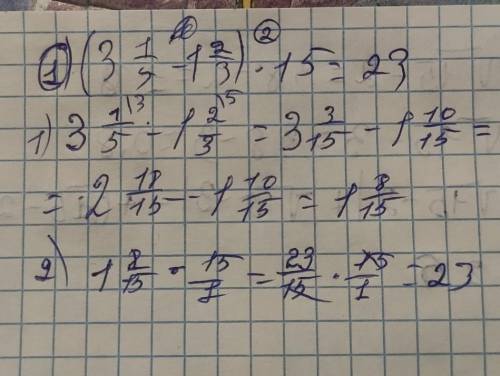 1) (3 1/5 - 1 2/3) · 15 = 23
1) 3 1/5 - 1 2/3 = 3 3/15 - 1 10/15 =
= 2 18/15 - 1 10/15 = 1 8/15
2) 1 8/15 · 15/1 = 23/15 · 15/1 = 23